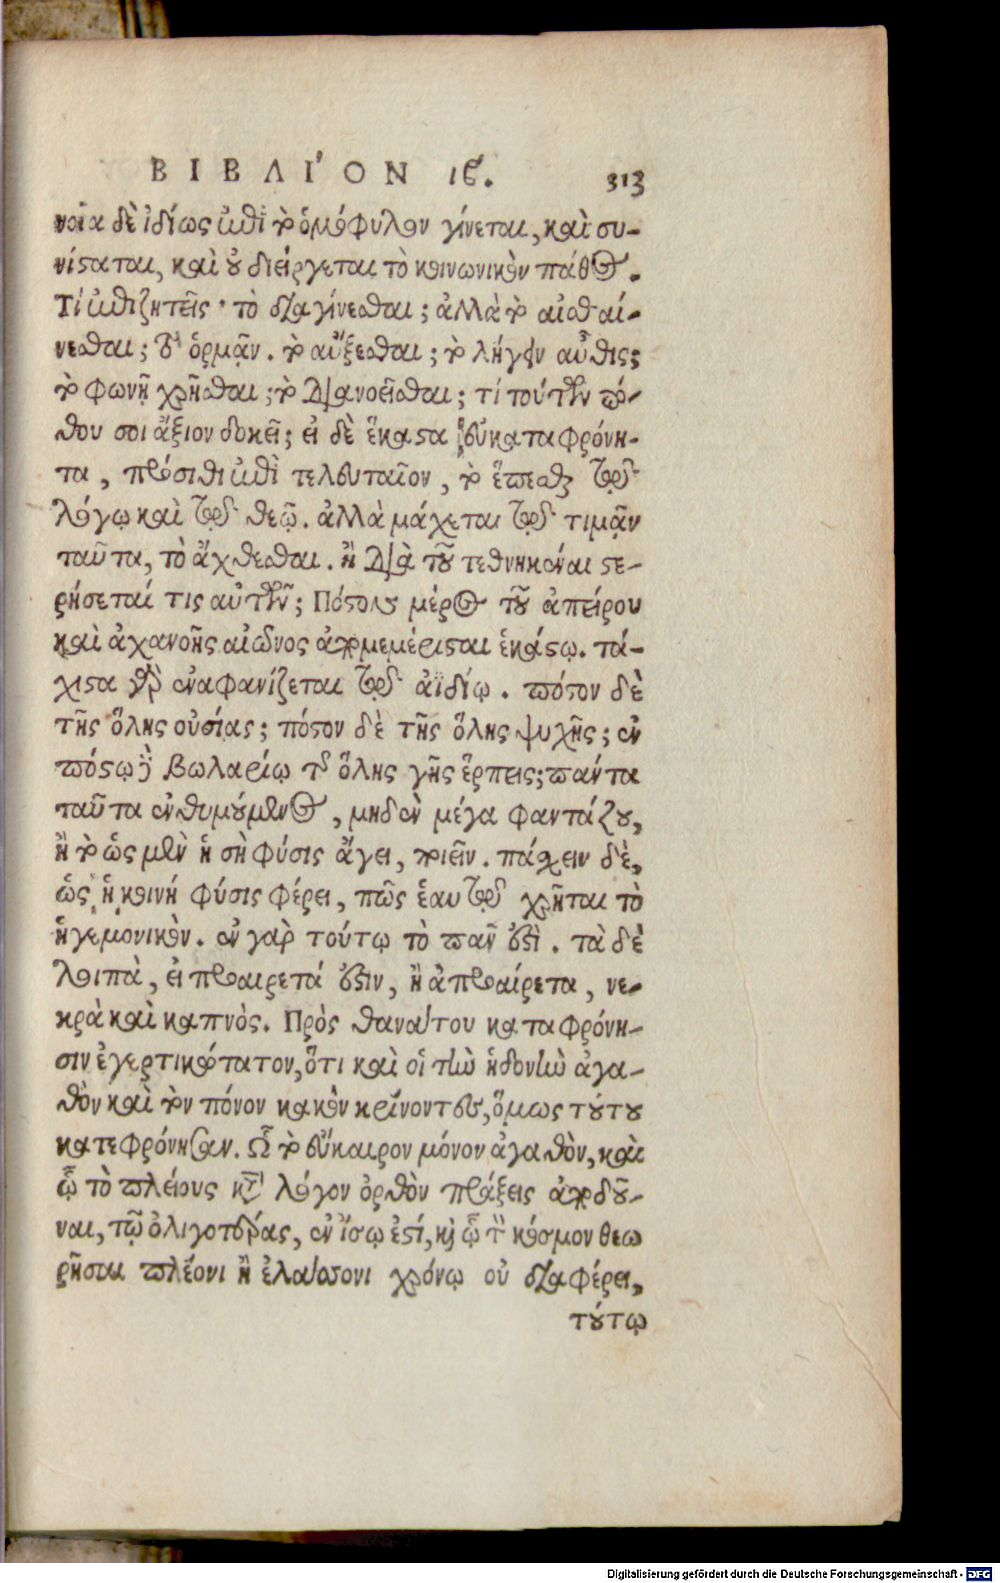 ΒΙΒΛΙ'ΟΝ ιβ. 313
νοια δὲ ἰδίως ἐπὶ τὸ ὁμόφυλον γίνεται, καὶ συ-
νίσταται, καὶ οὐ διείργεται τὸ κοινωνικὸν πάθος.
Τί ἐπιζητεῖς· τὸ διαγίνεσθαι; ἀλλὰ τὸ αἰσθαί-
νεσθαι; τὸ ὁρμᾷν. τὸ αὔξεσθαι; τὸ λήγειν αὖθις;
τὸ φωνῇ χρῆσθαι; τὸ διανοεῖσθαι; τί τούτων πό-
θου σοι ἄξιον δοκεῖ; εἰ δὲ ἕκαστα εὐκαταφρόνη-
τα, πρόσιθι ἐπὶ τελευταῖον, τὸ ἕπεσθαι τῷ
λόγῳ καὶ τῷ θεῷ. ἀλλὰ μάχεται τῷ τιμᾷν
ταῦτα, τὸ ἄχθεσθαι. ἢ διὰ τοῦ τεθνηκέναι στε-
ρήσεταί τις αὐτῶν; Πόστον μέρος τοῦ ἀπείρου
καὶ ἀχανοῦς αἰῶνος ἀπομεμέρισται ἑκάστῳ. τά-
χιστα γὰρ ἐναφανίζεται τῷ ἀϊδίῳ. πόστον δὲ
τῆς ὅλης οὐσίας; πόστον δὲ τῆς ὅλης ψυχῆς; ἐν
πόστῳ δὲ βωλαρίῳ τῆς ὅλης γῆς ἕρπεις; πάντα
ταῦτα ἐνθυμούμενος, μηδὲν μέγα φαντάζου,
ἢ τὸ ὡς μὲν ἡ σὴ φύσις ἄγει, ποιεῖν. πάσχειν δὲ,
ὡς ἡ κοινή φύσις φέρει, πῶς ἑαυτῷ χρῆται τὸ
ἡγεμονικὸν. ἐν γὰρ τούτῳ τὸ πᾶν ἐστὶ. τὰ δὲ
λοιπὰ, εἰ προαιρετά ἐστιν, ἢ ἀπροαίρετα, νε-
κρὰ καὶ καπνὸς. Πρὸς θανάτου καταφρόνη-
σιν ἐγερτικώτατον, ὅτι καὶ οἱ τὴν ἡδονὴν ἀγα-
θὸν καὶ τὸν πόνον κακὸν κρίνοντες, ὅμως τούτου
κατεφρόνησαν. Ὧ τὸ εὔκαιρον μόνον ἀγαθὸν, καὶ
ᾧ τὸ πλείους κατὰ λόγον ὀρθὸν πράξεις ἀποδοῦ-
ναι, τῷ ὀλιγοτέρας, ἐν ἴσῳ ἐστί, καὶ ᾧ τὸν κόσμον θεω
ρῆσαι πλέονι ἢ ἐλάσσονι χρόνῳ οὐ διαφέρει,
τούτῳ
Digitalisierung gefördert durch die Deutsche Forschungsgemeinschaft - DFG